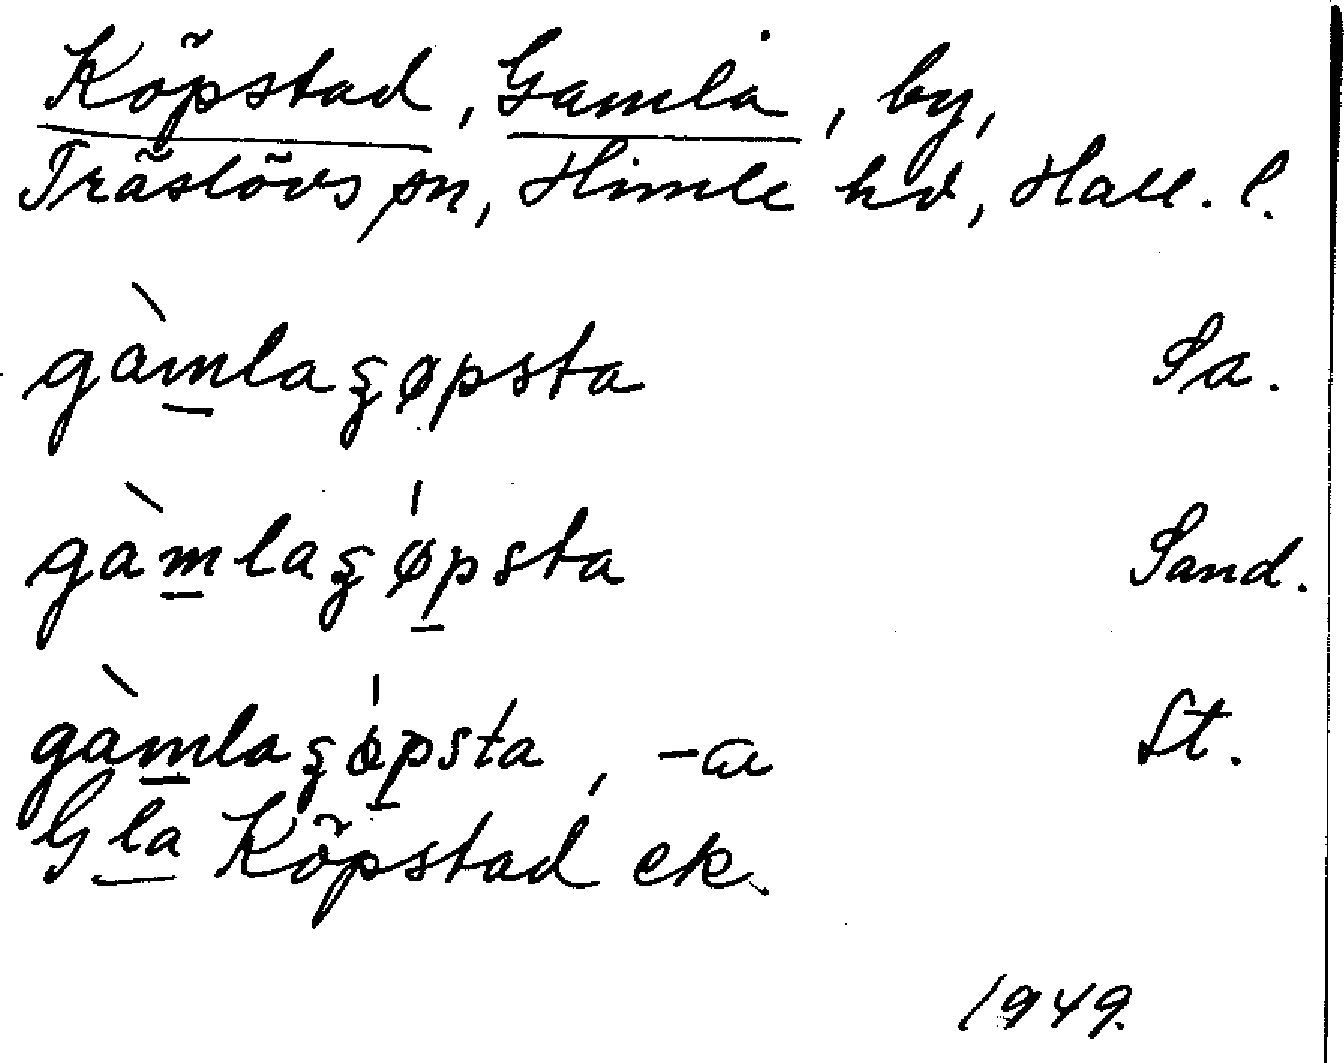 Köpstad, Gamla, by,
Träslövs sn, Himle hd, Hall. l.
gàm̲laʒøpsta Sa.
gàm̲laʒǿp̲sta Sand.
gàm̲laʒǿp̲sta, -a St.
Gla Köpstad ek.
1949.